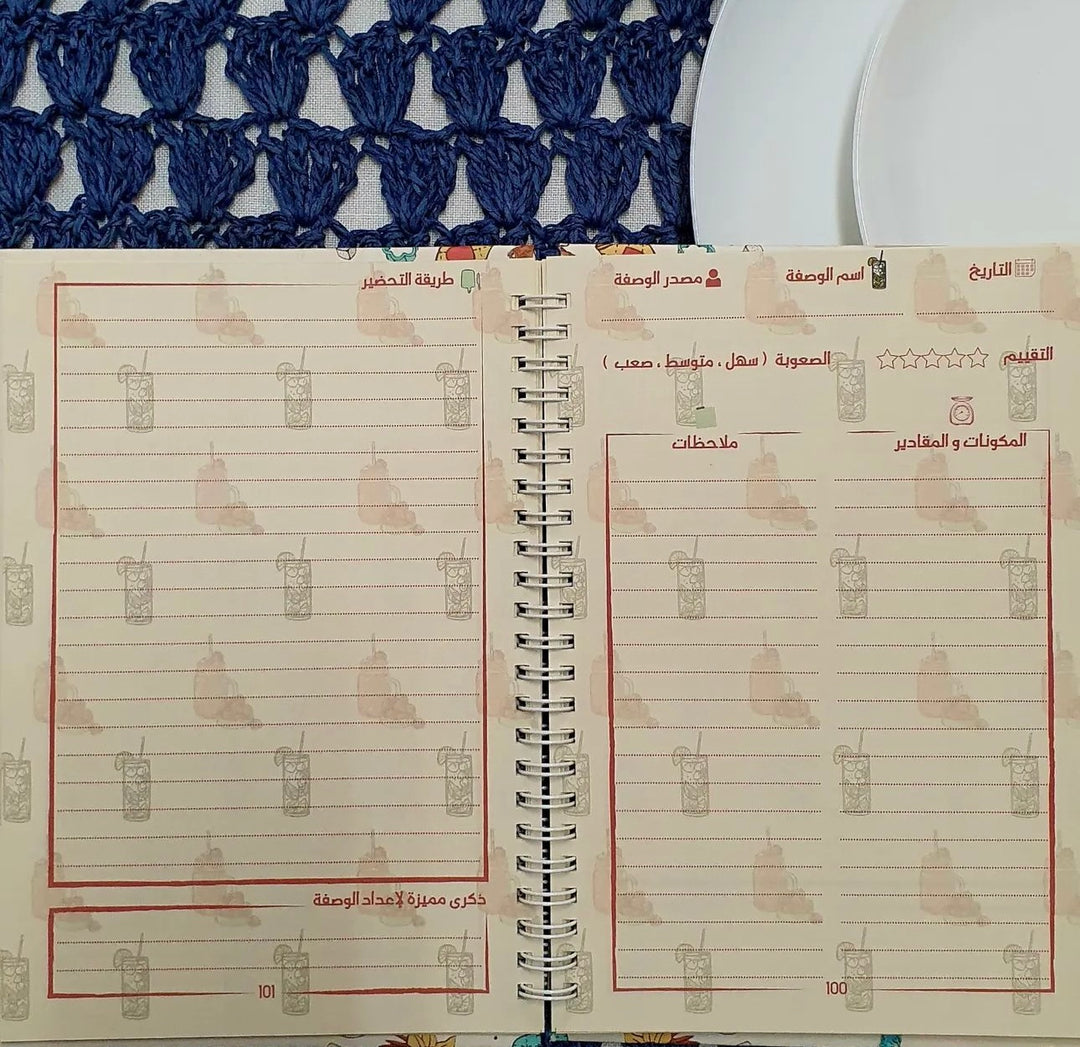 التاريخ
اسم الوصفة
مصدر الوصفة
التقييم
الصعوبة ( سهل ، متوسط ، صعب )
المكونات و المقادير
ملاحظات
100
طريقة التحضير
ذكرى مميزة لإعداد الوصفة
101